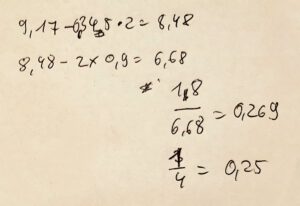 9,17 - 0,345 · 2 = 8,48
8,48 - 2 x 0,9 = 6,68
1,8 / 6,68 = 0,269
1 / 4 = 0,25